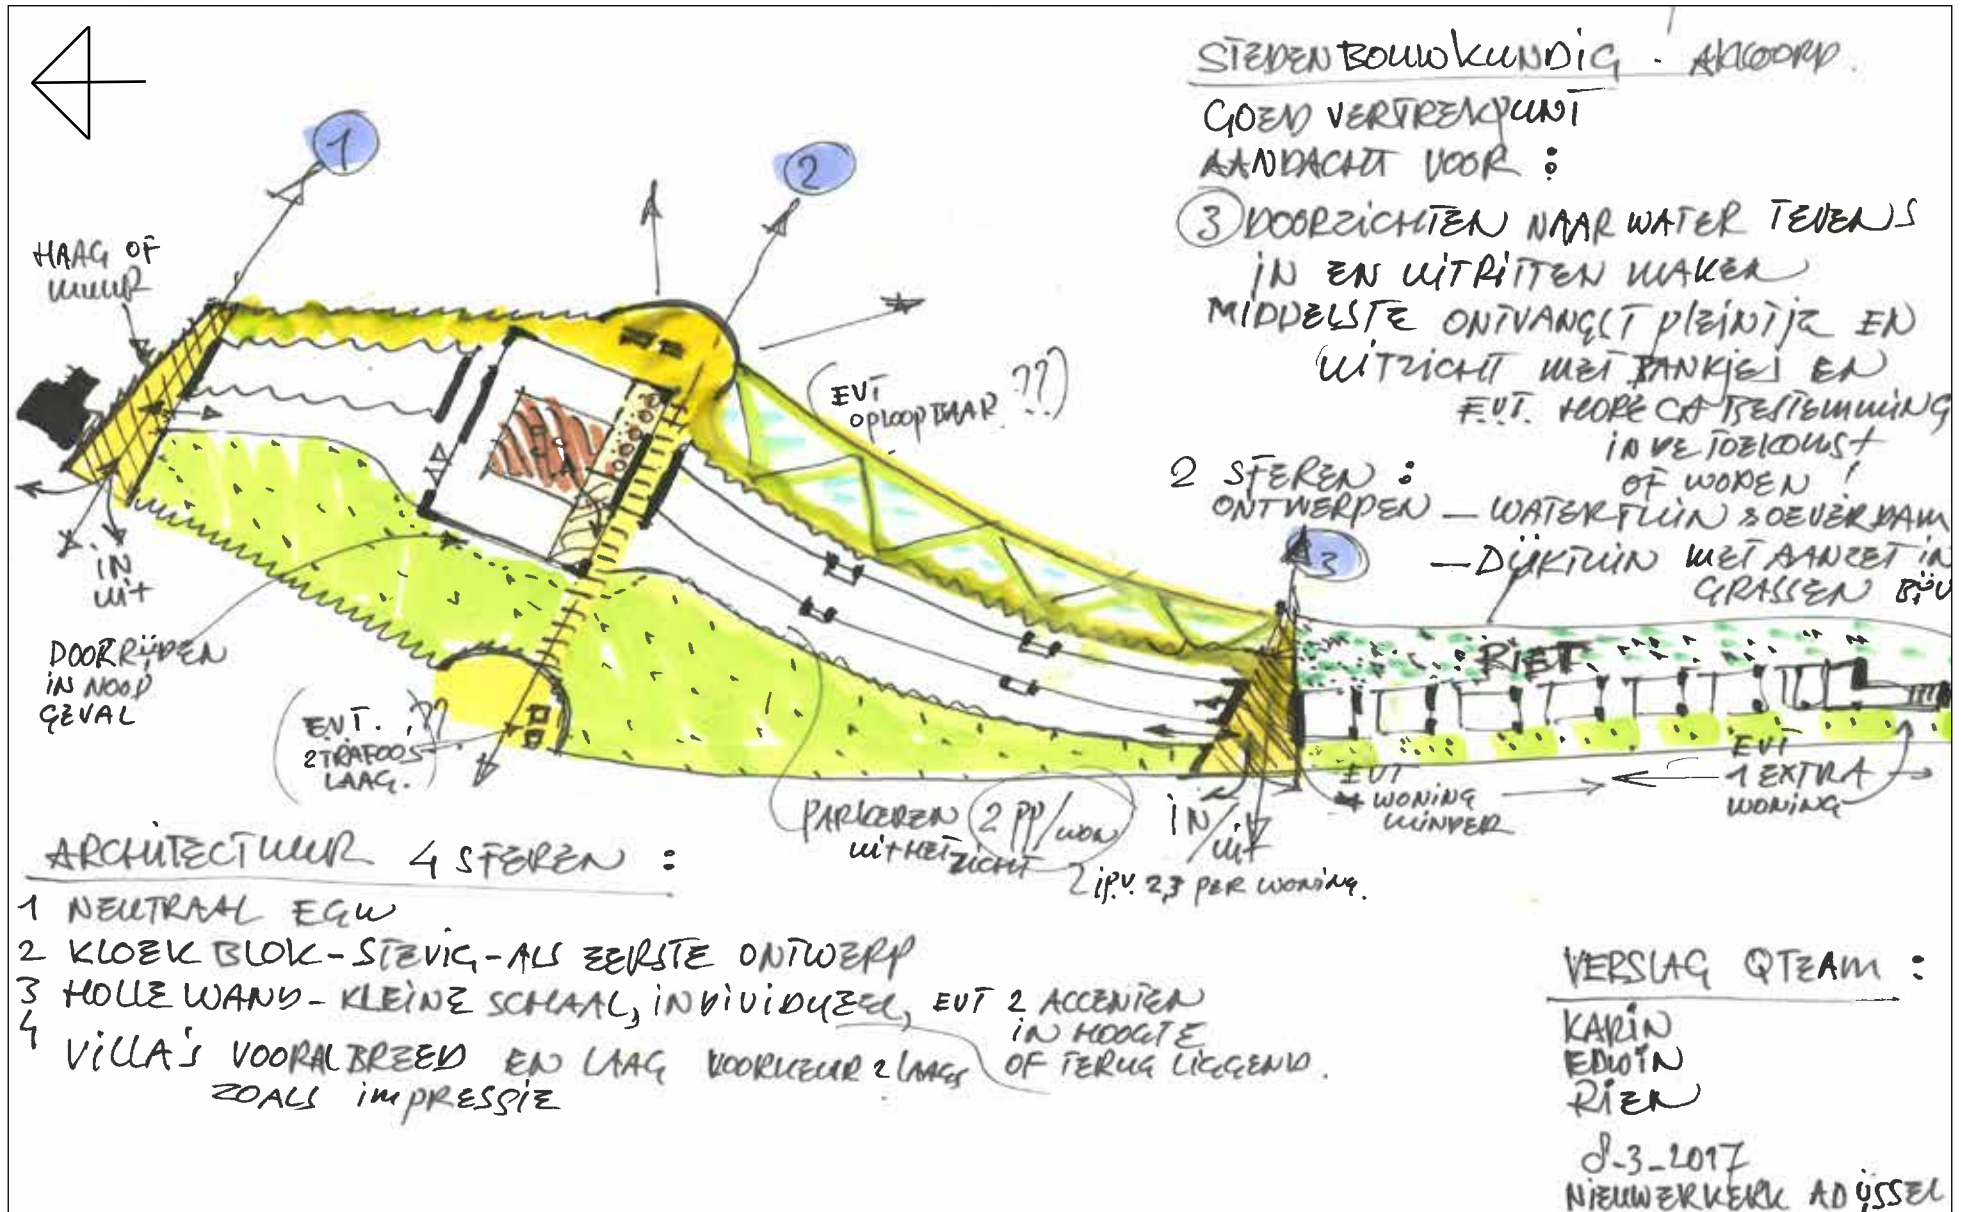 STEDENBOUWKUNDIG : AKKOORD.
GOED VERTREKPUNT
AANDACHT VOOR :
3 DOORZICHTEN NAAR WATER TEVENS
IN EN UITRITTEN MAKEN
MIDDELSTE ONTVANGST PLEINTJE EN
UITZICHT MET BANKJES EN
EVT. HORECA BESTEMMING
IN DE TOEKOMST
OF WONEN !
2 SFEREN :
ONTWERPEN — WATERTUIN & OEVER DAM
— DIJKTUIN MET AANZET IN
GRASSEN BIJV
1
2
3
HAAG OF
MUUR
(EVT
OPLOOPBAAR ??)
IN
UIT
DOORRIJDEN
IN NOOD
GEVAL
(EVT. ??
2 TRAFOOS
LAAG.)
RIET
PARKEREN 2 PP/WON
UIT HET ZICHT
2 IPV. 2,3 PER WONING.
IN/
UIT
EVT
WONING
MINDER
EVT
1 EXTRA
WONING
ARCHITECTUUR 4 SFEREN :
1 NEUTRAAL EGW
2 KLOEK BLOK - STEVIG - ALS EERSTE ONTWERP
3 HOLLE WAND - KLEINE SCHAAL, INDIVIDUEEL, EVT 2 ACCENTEN
IN HOOGTE
OF TERUG LIGGEND.
4 VILLA'S VOORAL BREED EN LAAG VOORKEUR 2 LAAGS
ZOALS IMPRESSIE
VERSLAG QTEAM :
KARIN
EDWIN
RIEN
8-3-2017
NIEUWERKERK AD IJSSEL